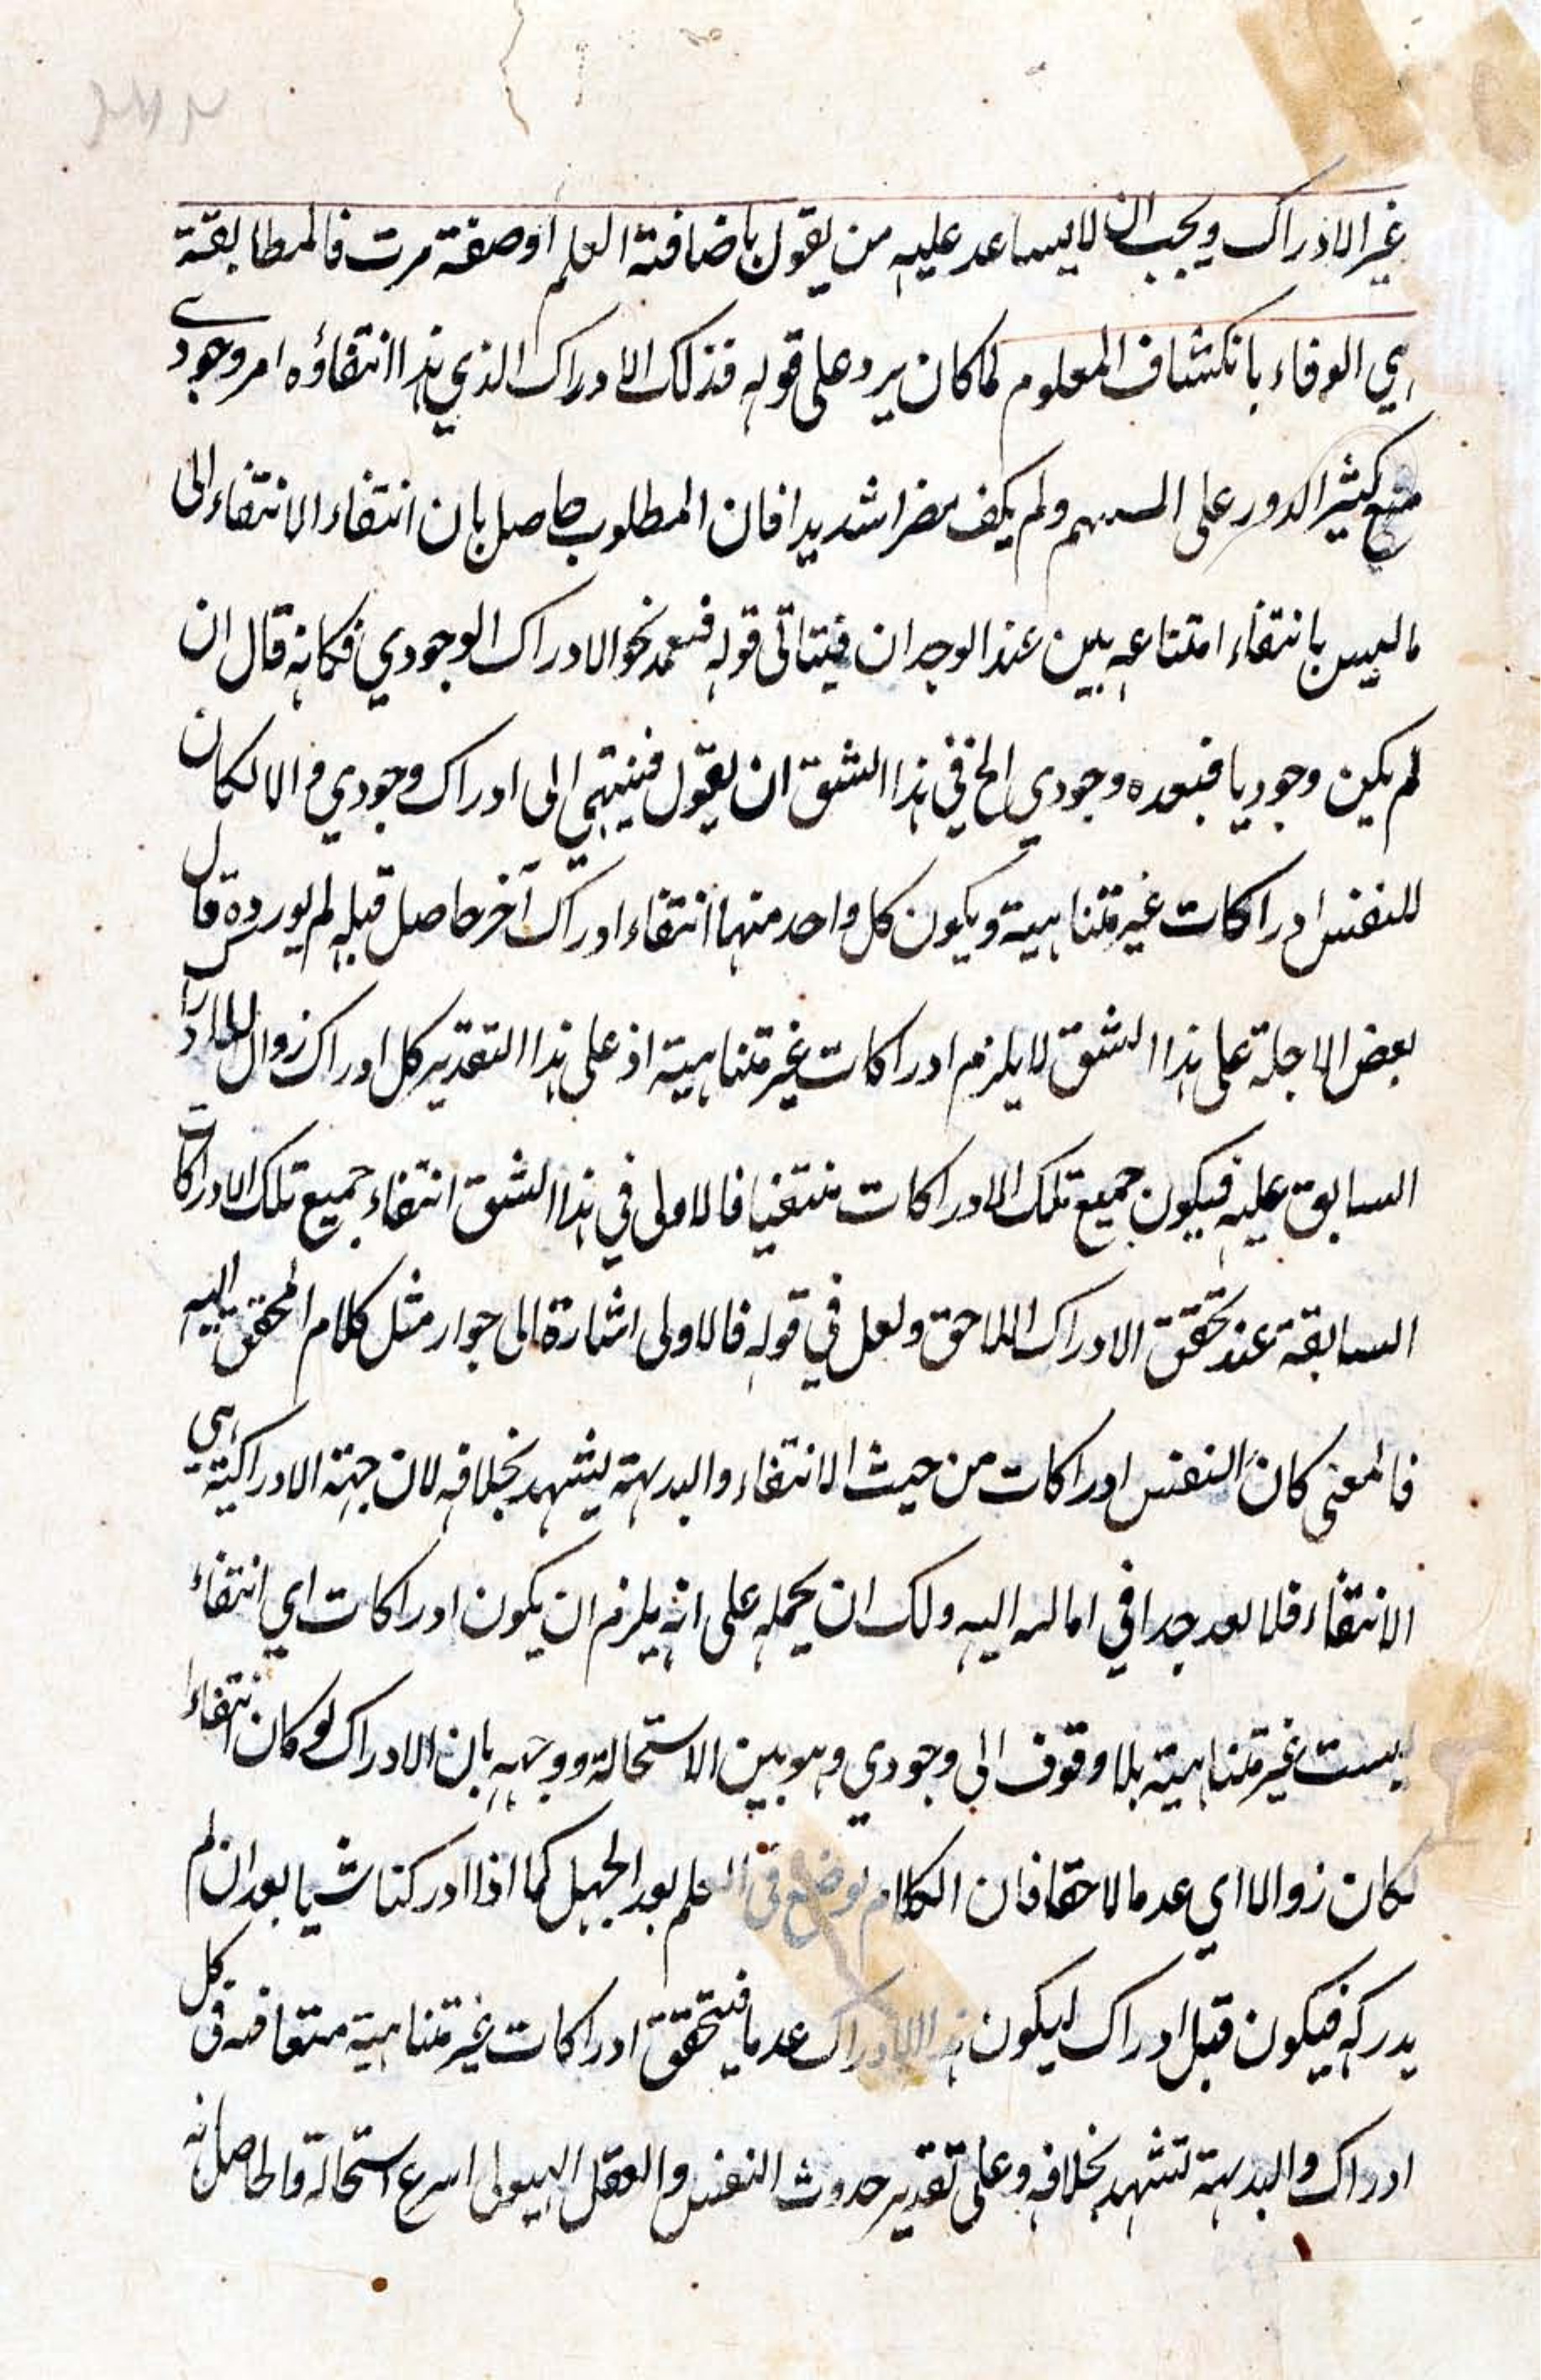 غير الادراك ويجب ان لا يساعد عليه من يقول باضافة العلم او صفة مرت فالمطابقة
هي الوفاء بانكشاف المعلوم لما كان يرد على قوله فذلك الادراك الذي هذا انتفاؤه امر وجودي
منع كثير الدور على ولم يكف مضرا شديدا فان المطلوب حاصل بان انتفاء الانتفاء الى
ما ليس بانتفاء امتناعه بين عند الوجدان قوله نحو الادراك الوجودي فكانه قال ان
لم يكن وجوديا فبعده وجودي الخ في هذا الشق ان يقول فينتهي الى ادراك وجودي والا لكان
للنفس ادراكات غير متناهية ويكون كل واحد منهما انتفاء ادراك آخر حاصل قبله لم يورده قال
بعض الاجلة على هذا الشق لا يلزم ادراكات غير متناهية اذ على هذا التقدير كل ادراك زوال للادراك
السابق عليه فيكون جميع تلك الادراكات منتفيا فالاولى في هذا الشق انتفاء جميع تلك الادراكات
السابقة عند تحقق الادراك اللاحق ولعل في قوله فالاولى اشارة الى جواز مثل كلام المحقق اليه
فالمعنى كان النفس ادراكات من حيث الانتفاء والبديهة يشهد بخلافه لان جهة الادراكية هي
الانتفاء فلا بعد جدا في اليه ولك ان يحمله على انه يلزم ان يكون ادراكات اي انتفاء
ليست غير متناهية بلا وقوف الى وجودي وهو بين الاستحالة ووجهه بان الادراك لو كان انتفاءا
لكان زوالا اي عدما لاحقا فان الكلام يوضع في العلم بعد الجهل كما اذا ادركنا شيا بعد ان لم
يدركه فيكون قبل ادراك ليكون هذا الادراك عدما فيتحقق ادراكات غير متناهية متعاقبه في كل
ادراك والبديهة تشهد بخلافه وعلى تقدير حدوث النفس والعقل الهيولى اسرع استحالة والحاصل انه